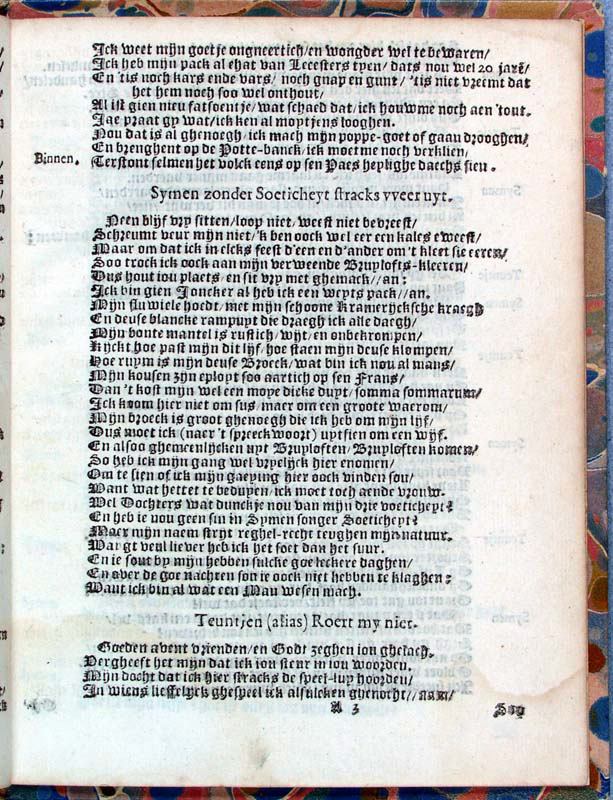 Ick weet mijn goetje ongneertich/en wongder wel te bewaren/
Ick heb mijn pack al ehat van Lecesters tyen/ dats nou wel 20 jare/
En 'tis noch kars ende vars/ noch gnap en gunt/ 'tis niet vreemt dat
het hem noch soo wel onthout/
Al ist gien nieu fatsoentje/wat schaed dat/ick houwme noch aen 'tout.
Jae praat gy wat/ick ken al moytjens looghen.
Nou dat is al ghenoegh/ick mach mijn poppe-goet of gaau drooghen/
Binnen. En brenghent op de Potte-banck/ick moetme noch verklien/
Terstont selmen het volck eens op sen Paes heylighe daechs sien.
Symen zonder Soeticheyt stracks vveer uyt.
Neen blijf vry sitten/loop niet/weest niet bevreest/
Schreumt veur mijn niet/'k ben oock wel eer een kales eweest/
Maar om dat ick in elcks feest d'een en d'ander om't kleet sie eeren/
Soo trock ick oock aan mijn verweende Bruylofts-kleeren/
Dus hout iou plaets/en sit vry met ghemack//an:
Ick bin gien Joncker al heb ick een weyts pack//an.
Mijn fluwiele hoedt/met mijn schoone Kamerycksche kraegh
En deuse blancke rampuyt die draegh ick alle daegh/
Mijn bonte mantel is rustich/wijt/en onbekrompen/
Kijckt hoe past mijn dit lijf/hoe staen mijn deuse klompen/
Hoe ruym is mijn deuse Broeck/wat bin ick nou al mans/
Mijn kousen zijn eployt soo aartich op sen Frans/
Dan 't kost mijn wel een moye dicke duyt/somma sommarum/
Ick koom hier niet om sus/maer om een groote waerom/
Mijn broeck is groot ghenoegh die ick heb om mijn lijf/
Dus moet ick (naer 't spreeckwoort) uytsien om een wijf.
En alsoo ghemeenlijcken uyt Bruyloften/Bruyloften komen/
So heb ick mijn gang wel vryelyck hier enomen/
Om te sien of ick mijn gaeying hier oock vinden sou/
Want wat hettet te beduyen/ick moet toch aende vrouw.
Wel Dochters wat dunckje nou van mijn drie voeticheyt?
En heb ie nou geen sin in Symen songer Soeticheyt?
Maer mijn naem strijt reghel-recht teughen mijn natuur.
Want veul liever heb ick het soet dan het suur.
En ie sout by mijn hebben sulcke goe leckere daghen/
En over de goe nachten son ie oock niet hebben te klaghen:
Want ick bin al wat een Man wesen mach.
Teuntjen (alias) Roert my niet.
Goeden avent vrienden/en Godt zeghen iou ghelach.
Vergheeft het mijn dat ick iou steur in iou woorden.
Mijn docht dat ick hier stracks de speel-luy hoorden/
In wiens lieffelyck ghespeel ick alsulcken ghenocht//
A 3